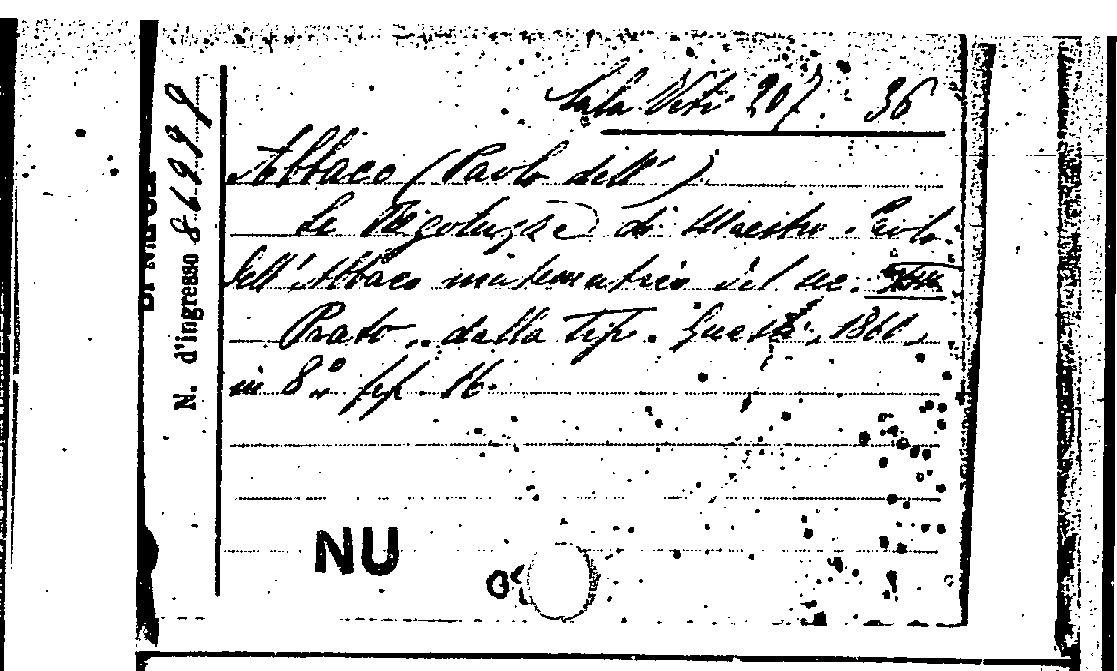 Sala Viti 207. 36
Abbaco (Paolo dell')
Le Regoluzze di Maestro Paolo
dell'Abbaco matematico del sec.
Prato, dalla Tip. Guasti, 1861,
in 8° pp. 16.
N. d'ingresso 86999
NU